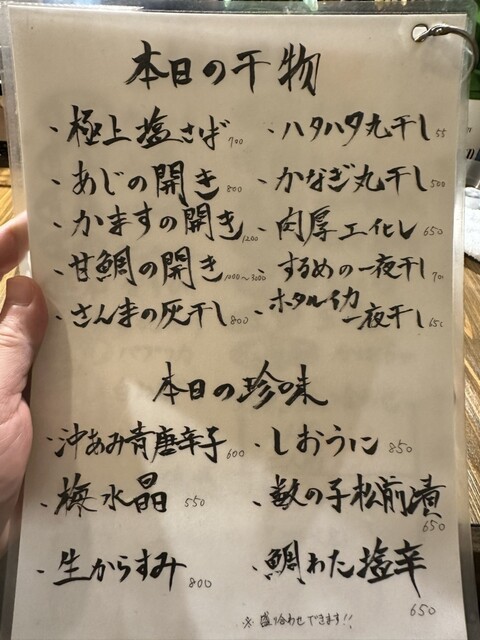 本日の干物
・極上塩さば 700
・あじの開き 800
・かますの開き 1200
・甘鯛の開き 1000〜3000
・さんまの灰干し 800
・ハタハタ丸干し 55
・かなぎ丸干し 500
・肉厚エイヒレ 650
・するめの一夜干し 70
・ホタルイカ一夜干し 650
本日の珍味
・沖あみ青唐辛子 600
・梅水晶 550
・生からすみ 800
・しおうに 850
・数の子松前漬 650
・鯛わた塩辛 650
※ 盛り合わせできます!!